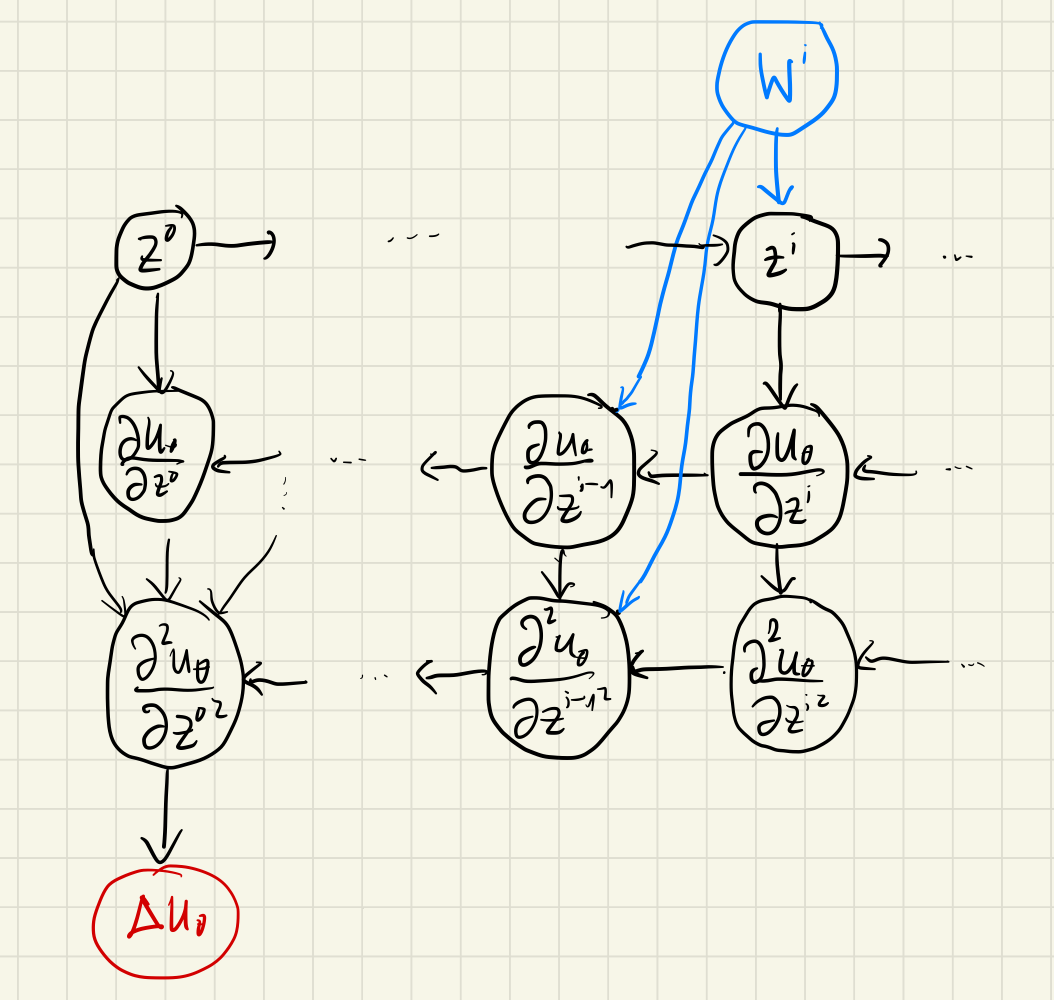 Wⁱ
z⁰
...
zⁱ
...
∂u_θ/∂z⁰
...
∂u_θ/∂zⁱ⁻¹
∂u_θ/∂zⁱ
...
∂²u_θ/∂z⁰²
...
∂²u_θ/∂zⁱ⁻¹²
∂²u_θ/∂zⁱ²
...
Δu_θ